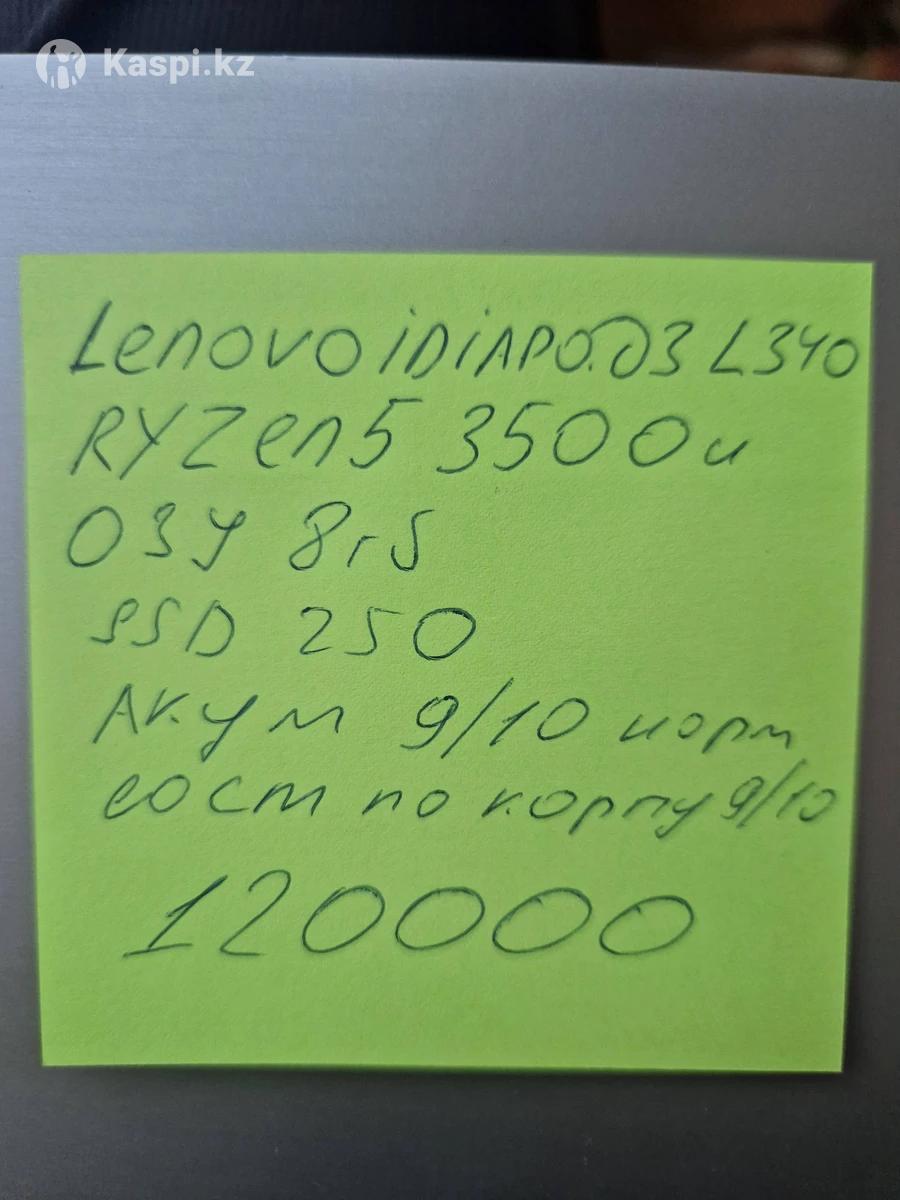 Kaspi.kz
Lenovo iDiAPO.D3 L340
RYZen5 3500u
ОЗУ 8гб
SSD 250
Акум 9/10 норм
сост по корпу 9/10
120000